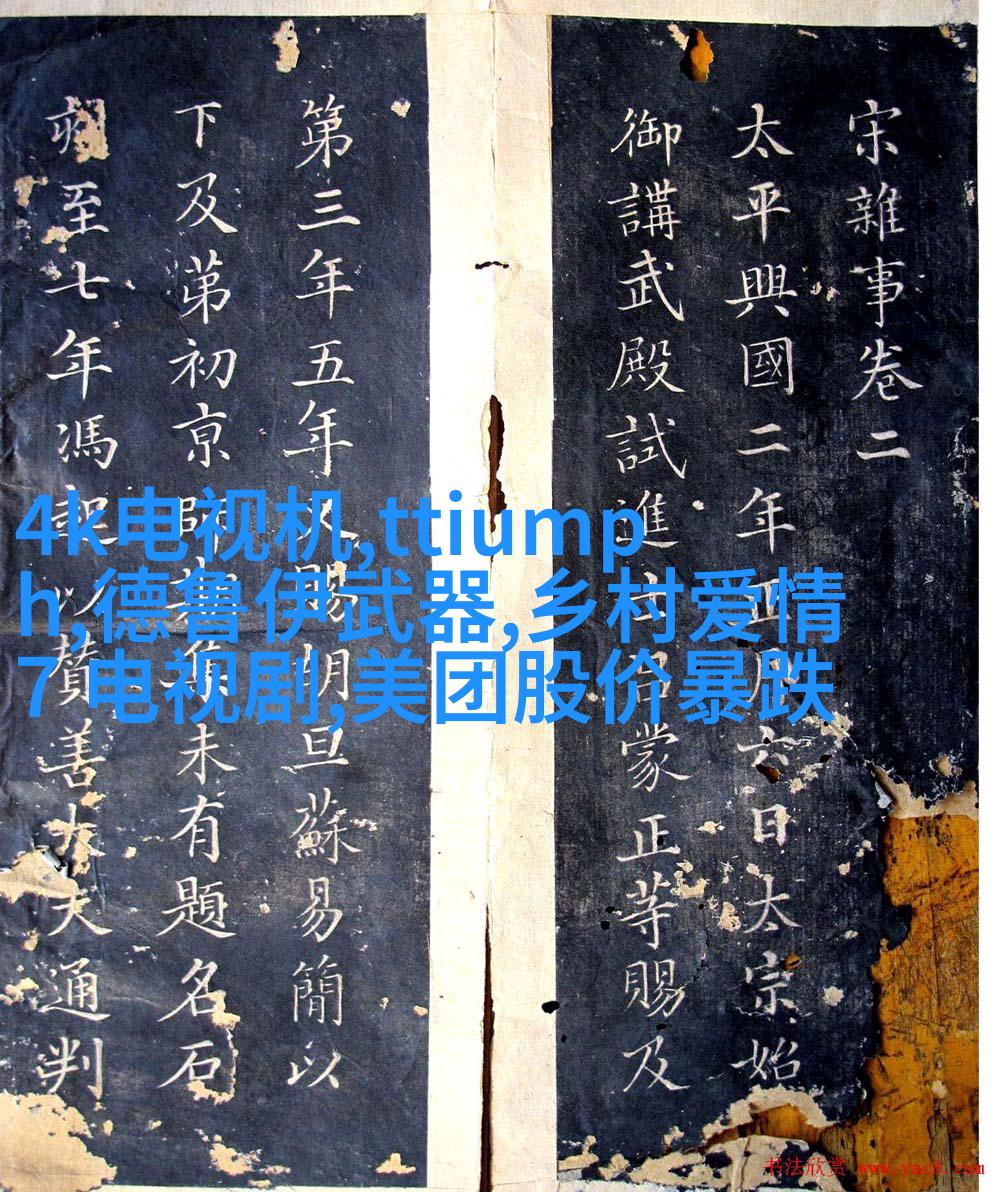 宋雜事卷二
太平興國二年正月六日太宗始
御講武殿試進士呂蒙正等賜及
第三年五年又賜胡旦蘇易簡以
下及苐初京師未有題名石
至七年馮起以贊善大夫通判
4k电视机,ttiump
h,德鲁伊武器,乡村爱情
7 电视剧,美团股价暴跌
书法欣赏 www.yac8.com